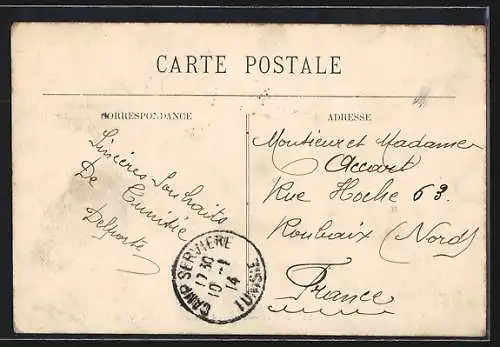 CARTE POSTALE
CORRESPONDANCE
Sincères Souhaits
De Tunisie
Delporte
ADRESSE
Monsieur et Madame
Accart
Rue Hoche 63.
Roubaix (Nord)
France
CAMP SERVIERE
17 30
10 -1
14
TUNISIE